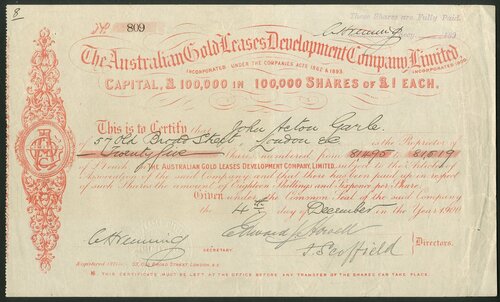 8
No. 809
These Shares are Fully Paid.
The Australian Gold Leases Development Company, Limited
INCORPORATED UNDER THE COMPANIES ACTS 1862 & 1893.
INCORPORATED 1900.
CAPITAL, £100,000 IN 100,000 SHARES OF £1 EACH.
This is to Certify that John Acton Garle
of 57 Old Broad Street London EC is the Proprietor of
Twenty five Shares numbered from 81495 to 81519
THE AUSTRALIAN GOLD LEASES DEVELOPMENT COMPANY, LIMITED, subject to the
Association of the said Company and that there has been paid up in respect
of such Shares the amount of Eighteen Shillings and Sixpence per Share.
Given under the Common Seal of the said Company
the 4th day of December in the Year 1900
SECRETARY.
Directors.
Registered Office: OLD BROAD STREET, LONDON, E.C.
THIS CERTIFICATE MUST BE LEFT AT THE OFFICE BEFORE ANY TRANSFER OF THE SHARES CAN TAKE PLACE.